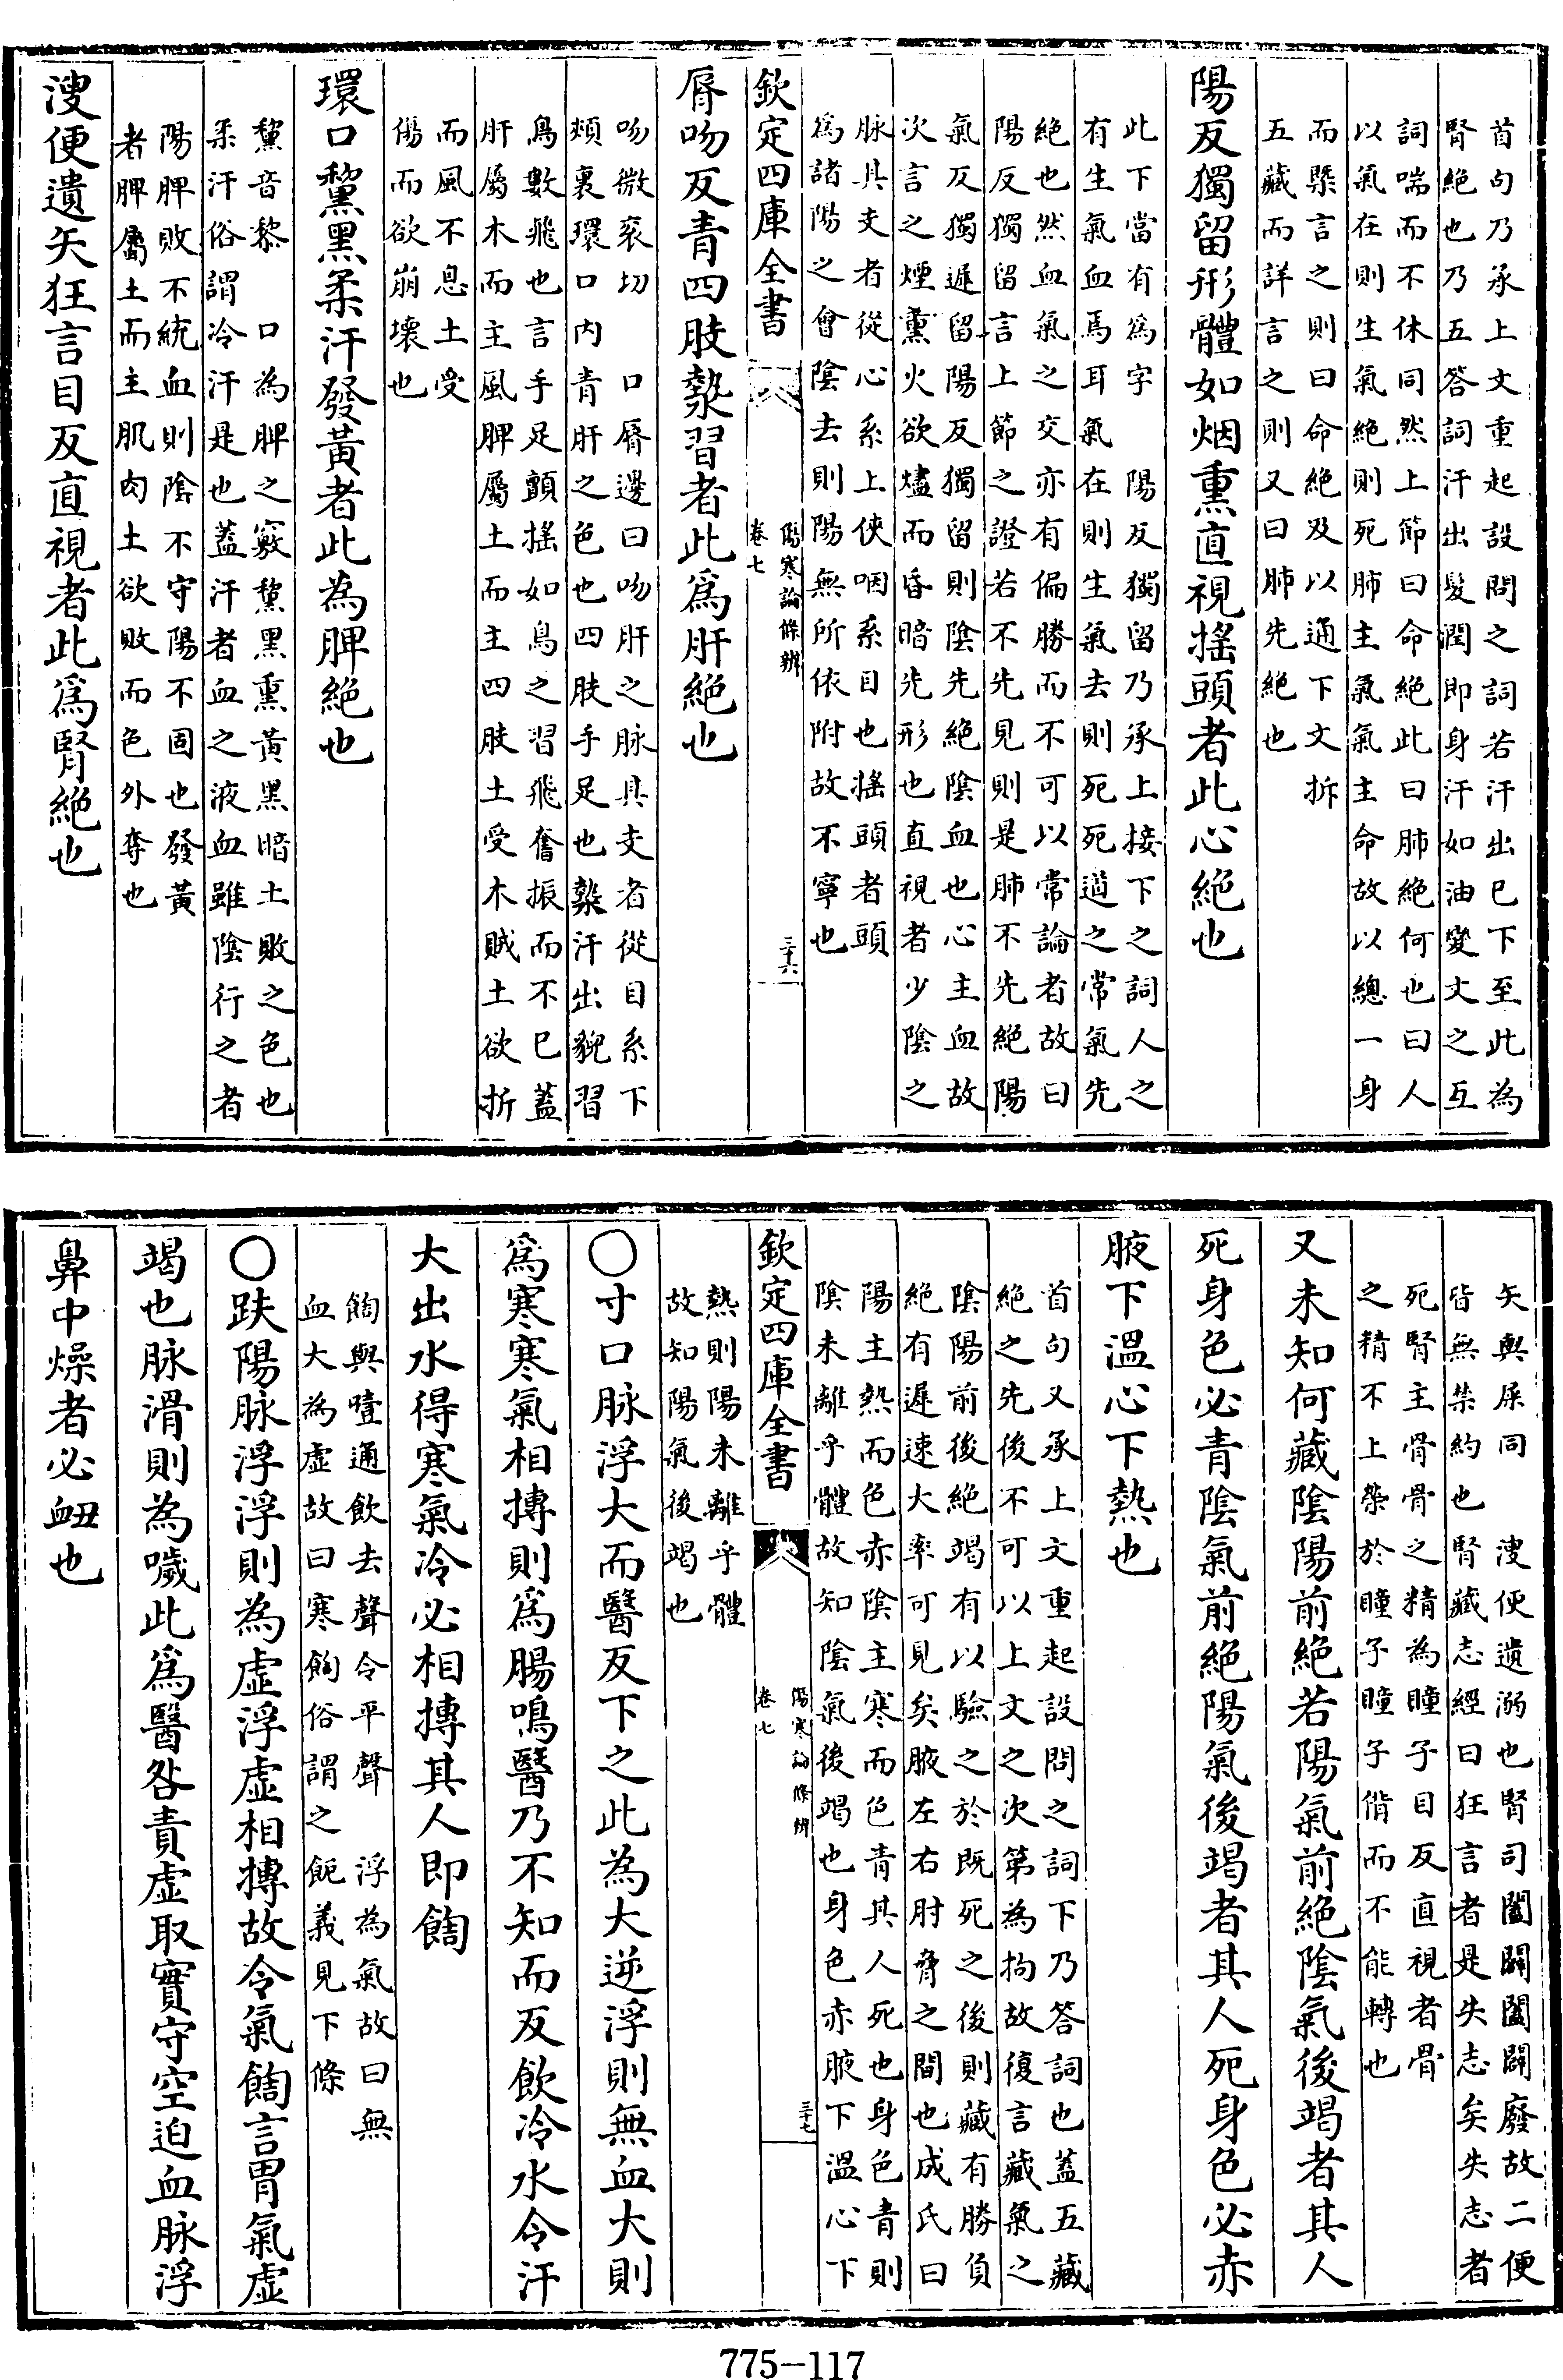 首句乃承上文重起設問之詞若汗出已下至此為
腎絶也乃五答詞汗出髮潤即身汗如油變文之互
詞喘而不休同然上節曰命絶此曰肺絶何也曰人
以氣在則生氣絶則死肺主氣氣主命故以總一身
而槩言之則曰命絶及以通下文拆
五藏而詳言之則又曰肺先絶也
陽反獨留形體如烟熏直視搖頭者此心絶也
此下當有為字　陽反獨留乃承上接下之詞人之
有生氣血焉耳氣在則生氣去則死死道之常氣先
絶也然血氣之交亦有偏勝而不可以常論者故曰
陽反獨留言上節之證若不先見則是肺不先絶陽
氣反獨遲留陽反獨留則陰先絶陰血也心主血故
次言之煙熏火欲燼而昏暗先形也直視者少陰之
脉其支者從心系上俠咽系目也搖頭者頭
為諸陽之會陰去則陽無所依附故不寧也
欽定四庫全書
傷寒論條辨
卷七
三十六
脣吻反青四肢漐習者此爲肝絶也
吻微衮切　口脣邊曰吻肝之脉其支者從目系下
頰裏環口内青肝之色也四肢手足也漐汗出貌習
鳥數飛也言手足顫搖如鳥之習飛奮振而不已蓋
肝屬木而主風脾屬土而主四肢土受木賊土欲折
而風不息土受
傷而欲崩壞也
環口黧黑柔汗發黃者此為脾絶也
黧音黎　口為脾之竅黧黑熏黃黑暗土敗之色也
柔汗俗謂冷汗是也蓋汗者血之液血雖陰行之者
陽脾敗不統血則陰不守陽不固也發黃
者脾屬土而主肌肉土欲敗而色外奪也
溲便遺矢狂言目反直視者此爲腎絶也
矢與屎同　溲便遺溺也腎司闔闢闔闢廢故二便
皆無禁約也腎藏志經曰狂言者是失志矣失志者
死腎主骨骨之精為瞳子目反直視者骨
之精不上榮於瞳子瞳子偝而不能轉也
又未知何藏陰陽前絶若陽氣前絶陰氣後竭者其人
死身色必青陰氣前絶陽氣後竭者其人死身色必赤
腋下溫心下熱也
首句又承上文重起設問之詞下乃答詞也蓋五藏
絶之先後不可以上文之次第為拘故復言藏氣之
陰陽前後絶竭有以驗之於既死之後則藏有勝負
絶有遲速大率可見矣腋左右肘脅之間也成氏曰
陽主熱而色赤陰主寒而色青其人死也身色青則
陰未離乎體故知陰氣後竭也身色赤腋下溫心下
欽定四庫全書
傷寒論條辨
卷七
三十七
熱則陽未離乎體
故知陽氣後竭也
〇寸口脉浮大而醫反下之此為大逆浮則無血大則
爲寒寒氣相摶則爲腸鳴醫乃不知而反飲冷水令汗
大出水得寒氣冷必相摶其人即䭇
䭇與噎通飲去聲令平聲　浮為氣故曰無
血大為虚故曰寒䭇俗謂之飽義見下條
〇趺陽脉浮浮則為虚浮虚相摶故令氣䭇言胃氣虚
竭也脉滑則為噦此爲醫咎責虚取實守空迫血脉浮
鼻中燥者必衄也
775-117